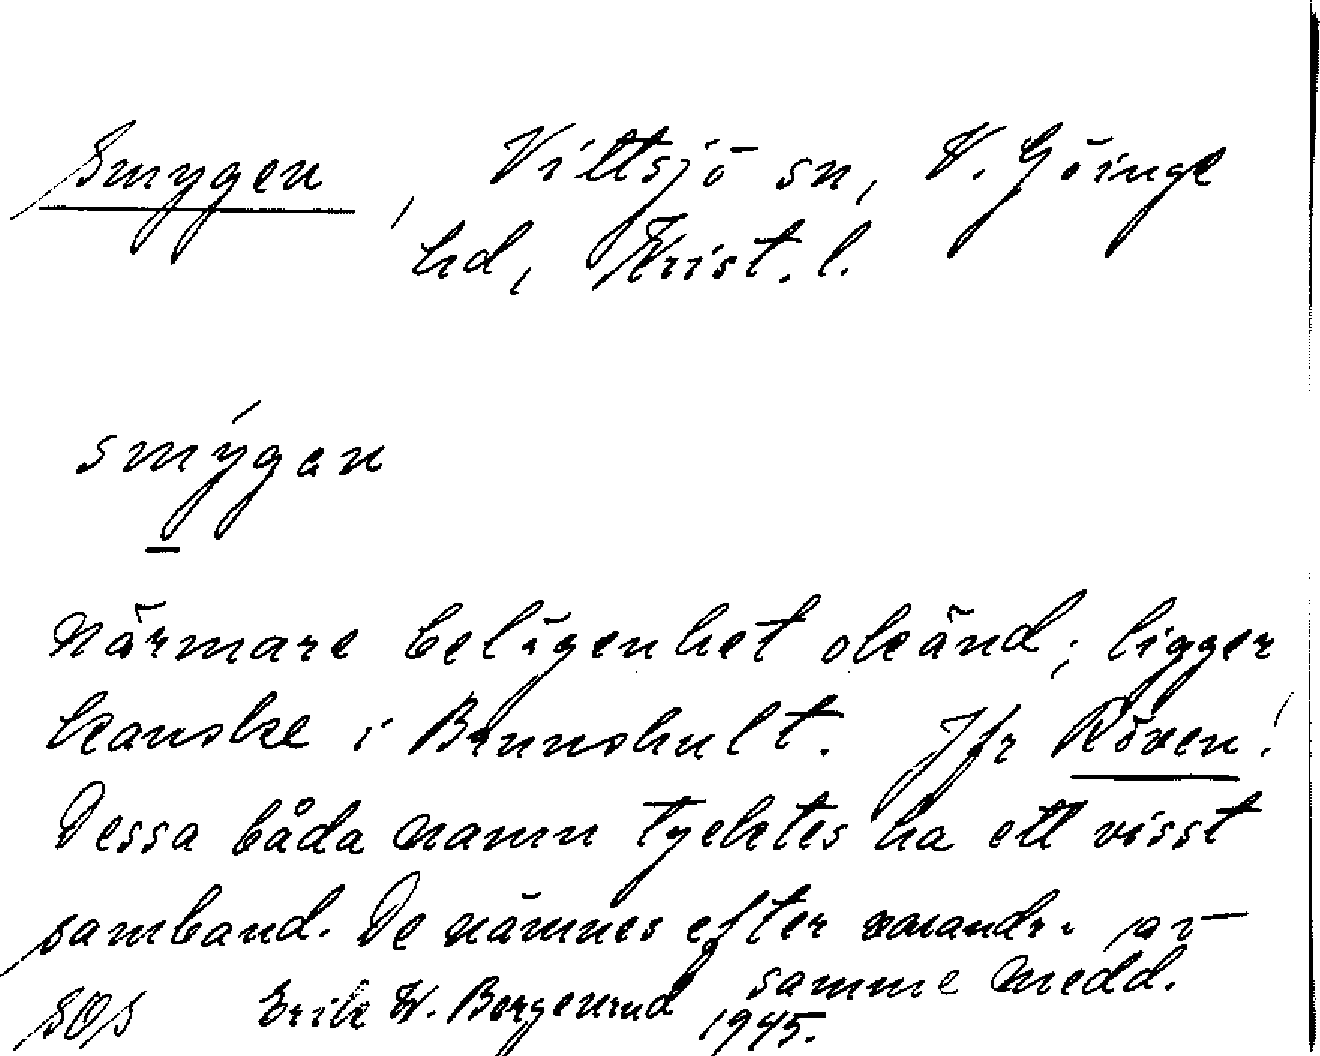 Smygen, Vittsjö sn, V. Göinge
hd, Krist. l.
smýgan
Närmare belägenhet okänd; ligger
kanske i Brunshult. Jfr Röven!
Dessa båda namn tycktes ha ett visst
samband. De nämnes efter varandra av
samme medd.
SOS Erik W. Bergerund 1945.